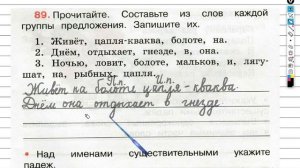 89. Прочитайте. Составьте из слов каждой
группы предложения. Запишите их.
1. Живёт, цапля-кваква, болоте, на.
2. Днём, отдыхает, гнезде, в, она.
3. Ночью, ловит, болоте, мальков, и, лягу-
шат, на, рыбных, цапля.
П.п. И.п.
Живёт на болоте цапля-кваква
Днём она отдыхает в гнезде
• Над именами существительными укажите
падеж.